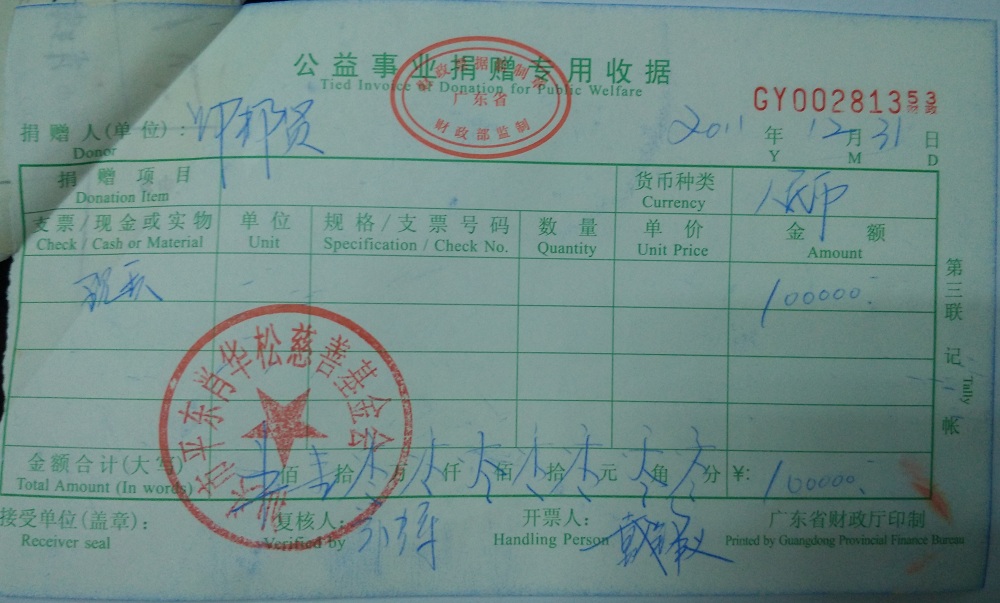 公益事业捐赠专用收据
Tied Invoice of Donation for Public Welfare
财政票据监制章
广东省
财政部监制
GY00281353
捐赠人(单位): 邦贤
Donor
2011 年 12 月 31 日
Y M D
捐赠项目 货币种类 人民币
Donation Item Currency
支票/现金或实物 单位 规格/支票号码 数量 单价 金额
Check / Cash or Material Unit Specification / Check No. Quantity Unit Price Amount
100000.
金额合计(大写) 佰 壹 拾 万 仟 佰 拾 元 角 分 ¥: 100000.
Total Amount (In words)
接受单位(盖章): 复核人: 开票人: 广东省财政厅印制
Receiver seal Verified by Handling Person Printed by Guangdong Provincial Finance Bureau
东肖华松慈善基金会
第三联 记帐
Tally